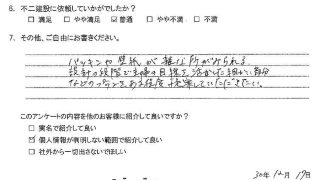 6. 不二建設に依頼していかがでしたか？
□ 満足 □ やや満足 ☑ 普通 □ やや不満 □ 不満
7. その他、ご自由にお書きください。
パッキンや壁紙が雑な所がみられる。
設計の段階で主婦の目線を活かした細かい部分
などのプランをある程度提案していただきたい。
このアンケートの内容を他のお客様に紹介して良いですか？
□ 実名で紹介して良い
☑ 個人情報が有明しない範囲で紹介して良い
□ 社外から一切出さないでほしい
30年 12月 17日